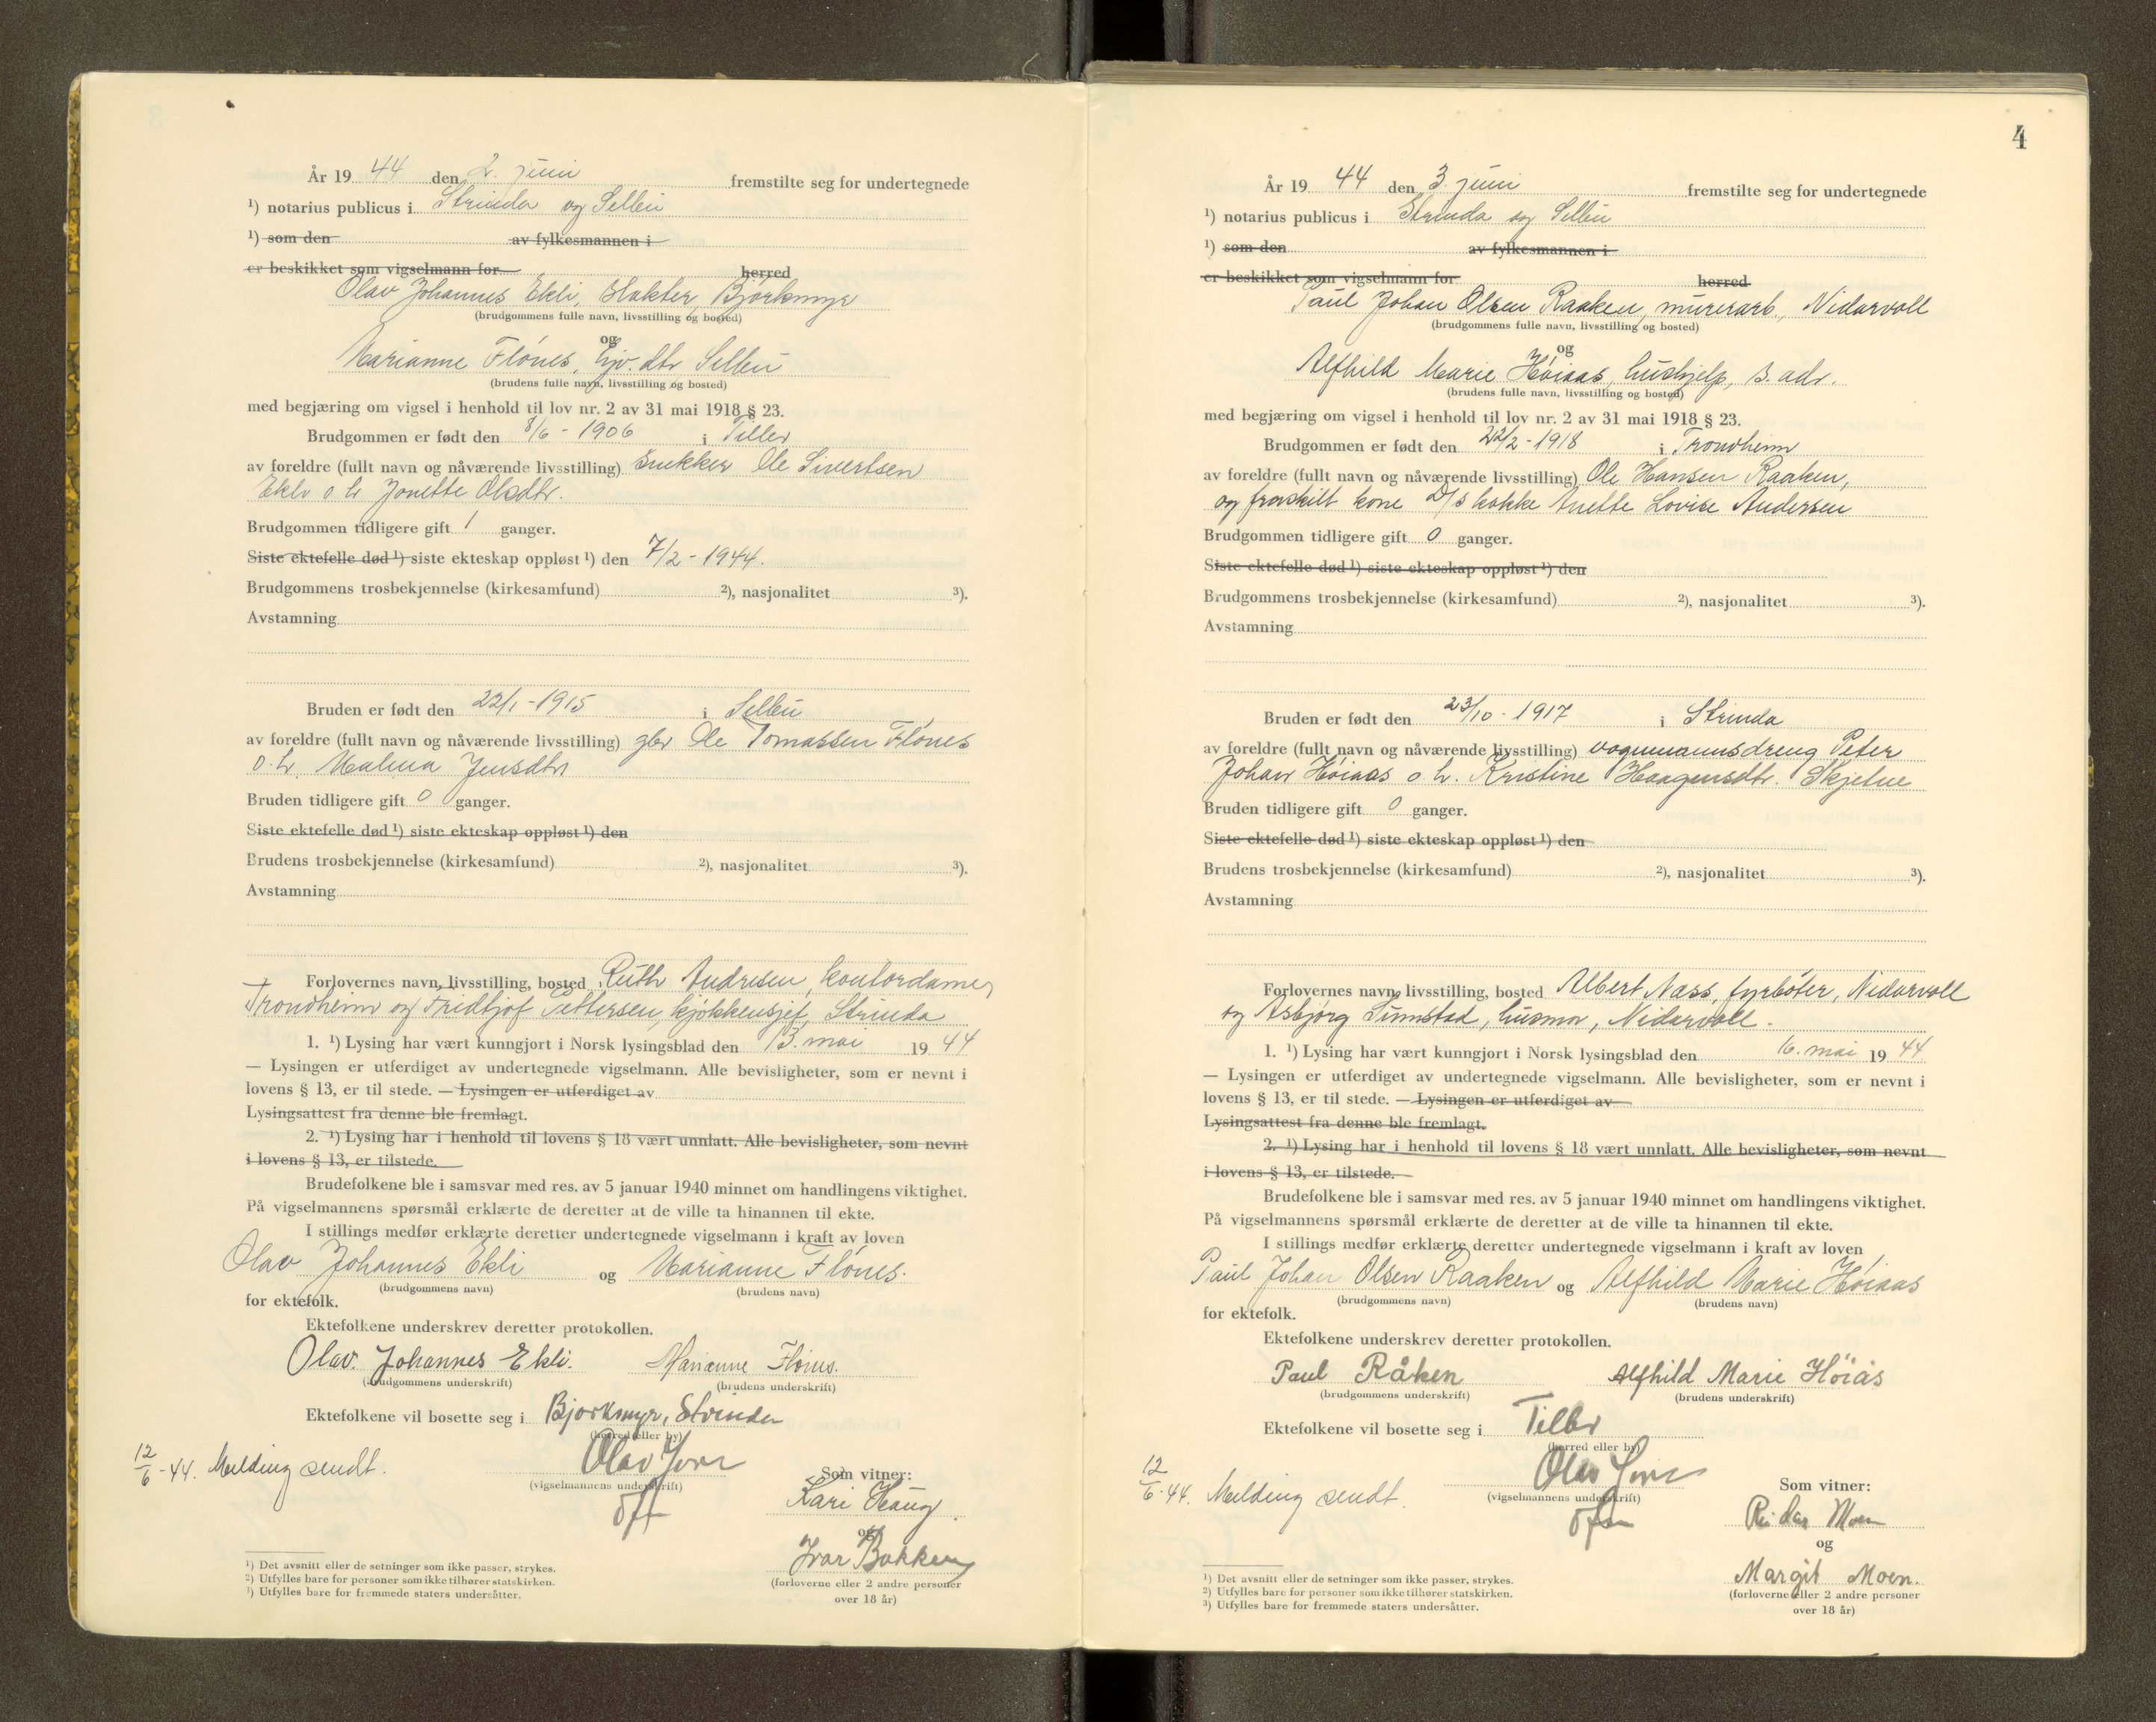 År 19 44 den 2. juni fremstilte seg for undertegnede
¹) notarius publicus i Strinda og Selbu
¹) som den av fylkesmannen i
er beskikket som vigselmann for herred
Olav Johannes Ekli, slakter, Bjørkmyr
(brudgommens fulle navn, livsstilling og bosted)
og
Marianne Flønes, hjv. dtr Selbu
(brudens fulle navn, livsstilling og bosted)
med begjæring om vigsel i henhold til lov nr. 2 av 31 mai 1918 § 23.
Brudgommen er født den 8/6 - 1906 i Tiller
av foreldre (fullt navn og nåværende livsstilling) snekker Ole Sivertsen
Ekli o h Jonette Olsdtr.
Brudgommen tidligere gift 1 ganger.
Siste ektefelle død ¹) siste ekteskap oppløst ¹) den 7/2 - 1944.
Brudgommens trosbekjennelse (kirkesamfund) ²), nasjonalitet ³).
Avstamning
Bruden er født den 22/1 - 1915 i Selbu
av foreldre (fullt navn og nåværende livsstilling) gbr Ole Tomassen Flønes
o. h. Malena Jensdtr
Bruden tidligere gift 0 ganger.
Siste ektefelle død ¹) siste ekteskap oppløst ¹) den
Brudens trosbekjennelse (kirkesamfund) ²), nasjonalitet ³).
Avstamning
Forlovernes navn, livsstilling, bosted Ruth Andresen, kontordame,
Trondheim og Fridtjof Pettersen, kjøkkensjef, Strinda
1. ¹) Lysing har vært kunngjort i Norsk lysingsblad den 13. mai 19 44
— Lysingen er utferdiget av undertegnede vigselmann. Alle bevisligheter, som er nevnt i
lovens § 13, er til stede. — Lysingen er utferdiget av
Lysingsattest fra denne ble fremlagt.
2. ¹) Lysing har i henhold til lovens § 18 vært unnlatt. Alle bevisligheter, som nevnt
i lovens § 13, er tilstede.
Brudefolkene ble i samsvar med res. av 5 januar 1940 minnet om handlingens viktighet.
På vigselmannens spørsmål erklærte de deretter at de ville ta hinannen til ekte.
I stillings medfør erklærte deretter undertegnede vigselmann i kraft av loven
Olav Johannes Ekli og Marianne Flønes.
(brudgommens navn) (brudens navn)
for ektefolk.
Ektefolkene underskrev deretter protokollen.
Olav Johannes Ekli. Marianne Flønes.
(brudgommens underskrift) (brudens underskrift)
Ektefolkene vil bosette seg i Bjørkmyr, Strinda
(herred eller by)
12/6 - 44. Melding sendt.
Olav
(vigselmannens underskrift)
Som vitner:
Kari Haug
og
Ivar Bakken
(forloverne eller 2 andre personer
over 18 år)
¹) Det avsnitt eller de setninger som ikke passer, strykes.
²) Utfylles bare for personer som ikke tilhører statskirken.
³) Utfylles bare for fremmede staters undersåtter.
4
År 19 44 den 3. juni fremstilte seg for undertegnede
¹) notarius publicus i Strinda og Selbu
¹) som den av fylkesmannen i
er beskikket som vigselmann for herred
Paul Johan Olsen Raaken, murerarb., Nidarvoll
(brudgommens fulle navn, livsstilling og bosted)
og
Alfhild Marie Høiaas, hushjelp, s. adr.
(brudens fulle navn, livsstilling og bosted)
med begjæring om vigsel i henhold til lov nr. 2 av 31 mai 1918 § 23.
Brudgommen er født den 22/2 - 1918 i Trondheim
av foreldre (fullt navn og nåværende livsstilling) Ole Hansen Raaken,
og fraskilt kone D/S kokke Anette Lovise Andersen
Brudgommen tidligere gift 0 ganger.
Siste ektefelle død ¹) siste ekteskap oppløst ¹) den
Brudgommens trosbekjennelse (kirkesamfund) ²), nasjonalitet ³).
Avstamning
Bruden er født den 23/10 - 1917 i Strinda
av foreldre (fullt navn og nåværende livsstilling) vognmannsdreng Peter
Johan Høiaas o. h. Kristine Haagensdtr. Skjetne
Bruden tidligere gift 0 ganger.
Siste ektefelle død ¹) siste ekteskap oppløst ¹) den
Brudens trosbekjennelse (kirkesamfund) ²), nasjonalitet ³).
Avstamning
Forlovernes navn, livsstilling, bosted Albert Næss, fyrbøter, Nidarvoll
og Asbjørg Sunstad, husmor, Nidarvoll.
1. ¹) Lysing har vært kunngjort i Norsk lysingsblad den 16. mai 19 44
— Lysingen er utferdiget av undertegnede vigselmann. Alle bevisligheter, som er nevnt i
lovens § 13, er til stede. — Lysingen er utferdiget av
Lysingsattest fra denne ble fremlagt.
2. ¹) Lysing har i henhold til lovens § 18 vært unnlatt. Alle bevisligheter, som nevnt
i lovens § 13, er tilstede.
Brudefolkene ble i samsvar med res. av 5 januar 1940 minnet om handlingens viktighet.
På vigselmannens spørsmål erklærte de deretter at de ville ta hinannen til ekte.
I stillings medfør erklærte deretter undertegnede vigselmann i kraft av loven
Paul Johan Olsen Raaken og Alfhild Marie Høiaas
(brudgommens navn) (brudens navn)
for ektefolk.
Ektefolkene underskrev deretter protokollen.
Paul Råken Alfhild Marie Höiås
(brudgommens underskrift) (brudens underskrift)
Ektefolkene vil bosette seg i Tiller
(herred eller by)
12/6 - 44. Melding sendt.
Olav
(vigselmannens underskrift)
Som vitner:
Reidar Moen
og
Margit Moen.
(forloverne eller 2 andre personer
over 18 år)
¹) Det avsnitt eller de setninger som ikke passer, strykes.
²) Utfylles bare for personer som ikke tilhører statskirken.
³) Utfylles bare for fremmede staters undersåtter.